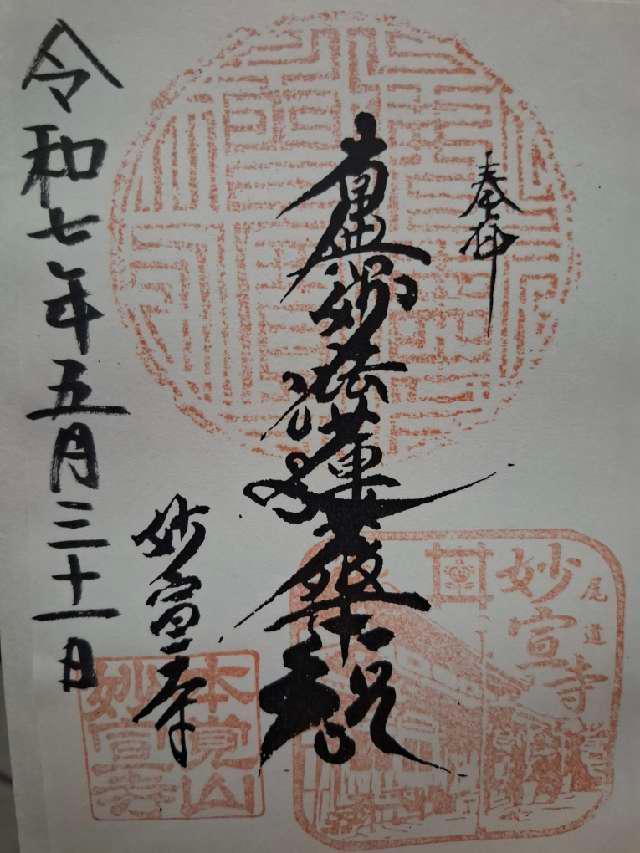 奉拝
南無妙法蓮華経
妙宣寺
令和七年五月三十一日
尾道
妙宣寺
本覚山
妙宣寺